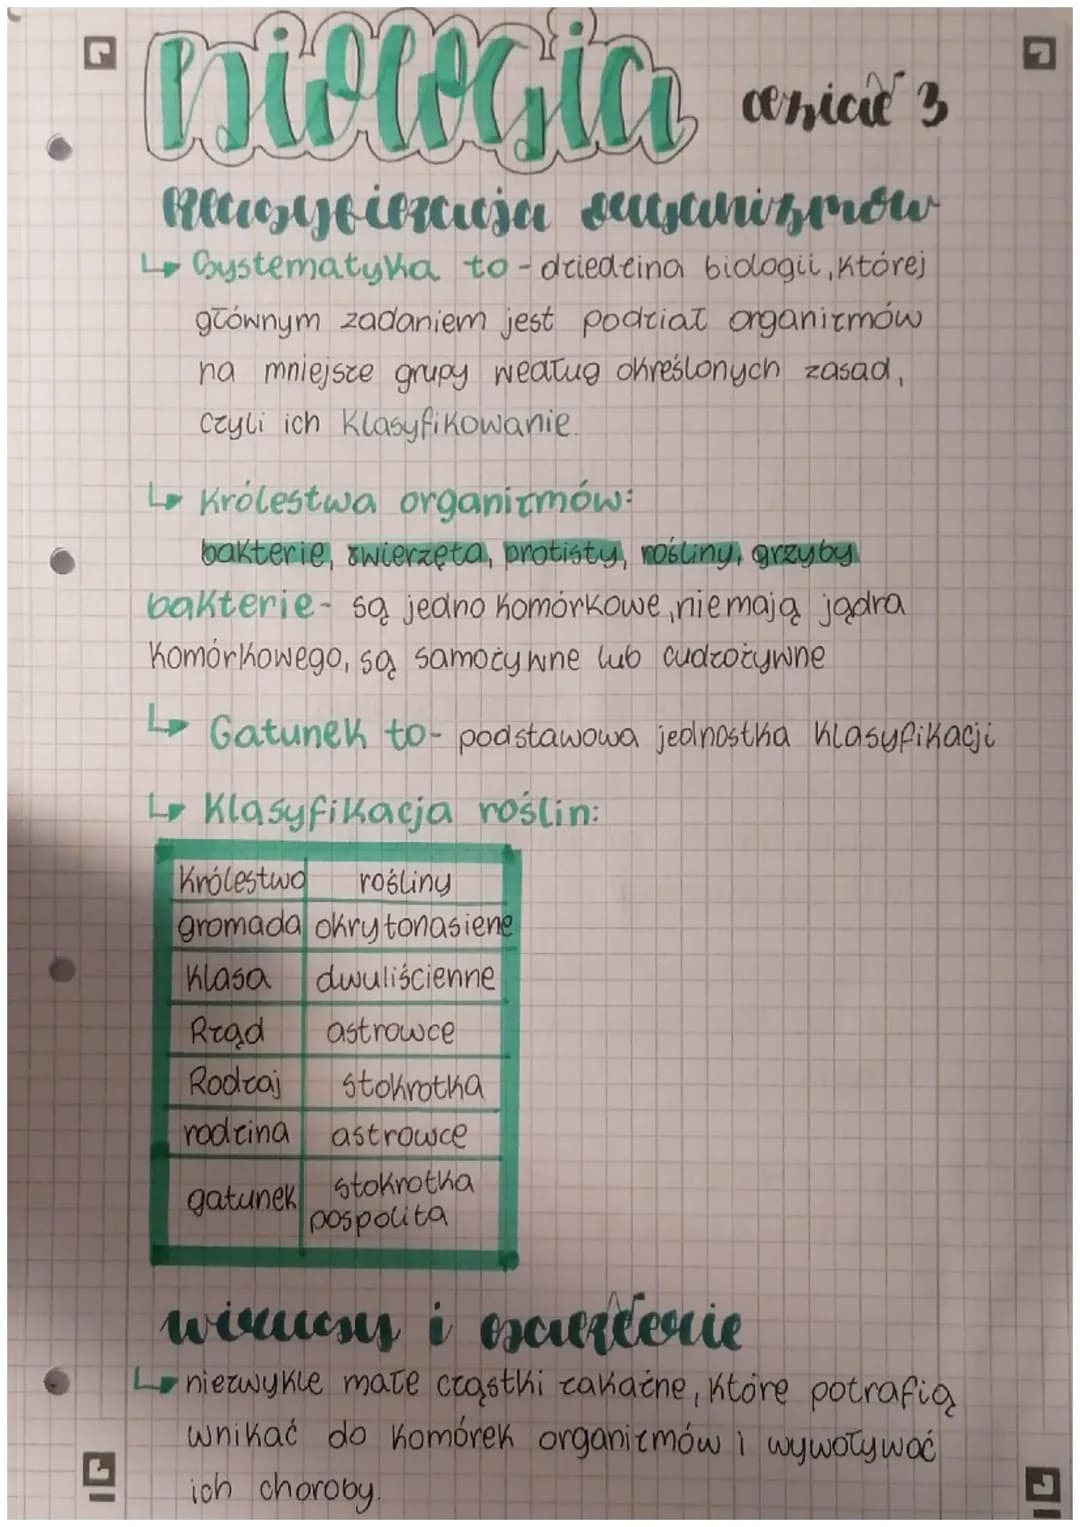 Biologia część 3
Klasyfikacja organizmów
↳ Systematyka to - dziedzina biologii, której
głównym zadaniem jest podział organizmów
na mniejsze grupy według określonych zasad,
czyli ich klasyfikowanie.
↳ Królestwa organizmów:
bakterie, zwierzęta, protisty, rośliny, grzyby
bakterie - są jedno komórkowe, niemają jądra
komórkowego, są samożywne lub cudzożywne
↳ Gatunek to - podstawowa jednostka klasyfikacji
↳ Klasyfikacja roślin:
Królestwo rośliny
gromada okrytonasiene
Klasa dwuliścienne
Rząd astrowce
Rodzaj stokrotka
rodzina astrowce
gatunek stokrotka
pospolita
wirusy i bakterie
↳ niezwykle małe cząstki zakaźne, które potrafią
wnikać do komórek organizmów i wywoływać
ich choroby.